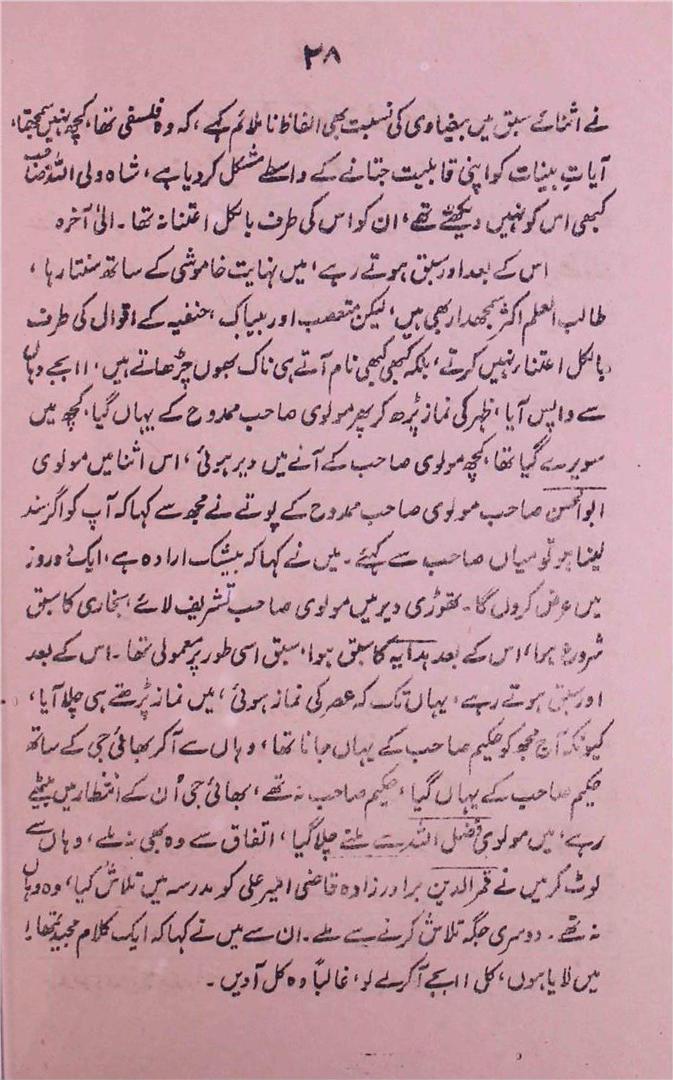 ۲۸
نے اثنائے سبق میں بیضاوی کی نسبت بھی الفاظ ناملائم کہے، کہ وہ فلسفی تھا، کچھ نہیں سمجھتا،
آیاتِ بینات کو اپنی قابلیت جتانے کے واسطے مشکل کردیا ہے، شاہ ولی اللہ صاحب
کبھی اس کو نہیں دیکھتے تھے، ان کو اس کی طرف بالکل اعتنا نہ تھا۔ الیٰ آخرہ
اس کے بعد اور سبق ہوتے رہے، میں نہایت خاموشی کے ساتھ سنتا رہا،
طالب العلم اکثر سمجھدار بھی ہیں، لیکن متعصب اور بیباک، حنفیہ کے اقوال کی طرف
بالکل اعتناء نہیں کرتے، بلکہ کبھی کبھی نام آتے ہی ناک بھوں چڑھاتے ہیں، ۱۱ بجے وہاں
سے واپس آیا، ظہر کی نماز پڑھ کر پھر مولوی صاحب ممدوح کے یہاں گیا، کچھ میں
سویرے گیا تھا، کچھ مولوی صاحب کے آنے میں دیر ہوئی، اس اثنا میں مولوی
ابوالحسن صاحب مولوی صاحب ممدوح کے پوتے نے مجھ سے کہا کہ آپ کو اگر سند
لینا ہو تو میاں صاحب سے کہئے۔ میں نے کہا کہ بیشک ارادہ ہے، ایک دو روز
میں عرض کروں گا۔ تھوڑی دیر میں مولوی صاحب تشریف لائے، بخاری کا سبق
شروع ہوا، اس کے بعد ہدایہ کا سبق ہوا، سبق اسی طور پر معمولی تھا۔ اس کے بعد
اور سبق ہوتے رہے، یہاں تک کہ عصر کی نماز ہوئی، میں نماز پڑھتے ہی چلا آیا،
کیونکہ آج مجھ کو حکیم صاحب کے یہاں جانا تھا، وہاں سے آکر بھائی جی کے ساتھ
حکیم صاحب کے یہاں گیا، حکیم صاحب نہ تھے، بھائی جی اُن کے انتظار میں بیٹھے
رہے، میں مولوی فضل اللہ سے ملنے چلا گیا، اتفاق سے وہ بھی نہ ملے، وہاں سے
لوٹ کر میں نے قمرالدین برادرزادہ قاضی امیر علی کو مدرسہ میں تلاش کیا، وہ وہاں
نہ تھے۔ دوسری جگہ تلاش کرنے سے ملے۔ ان سے میں نے کہا کہ ایک کلام مجید تمھارا
میں لایا ہوں، کل ۱۱ بجے آکر لے لو، غالباً وہ کل آدیں۔